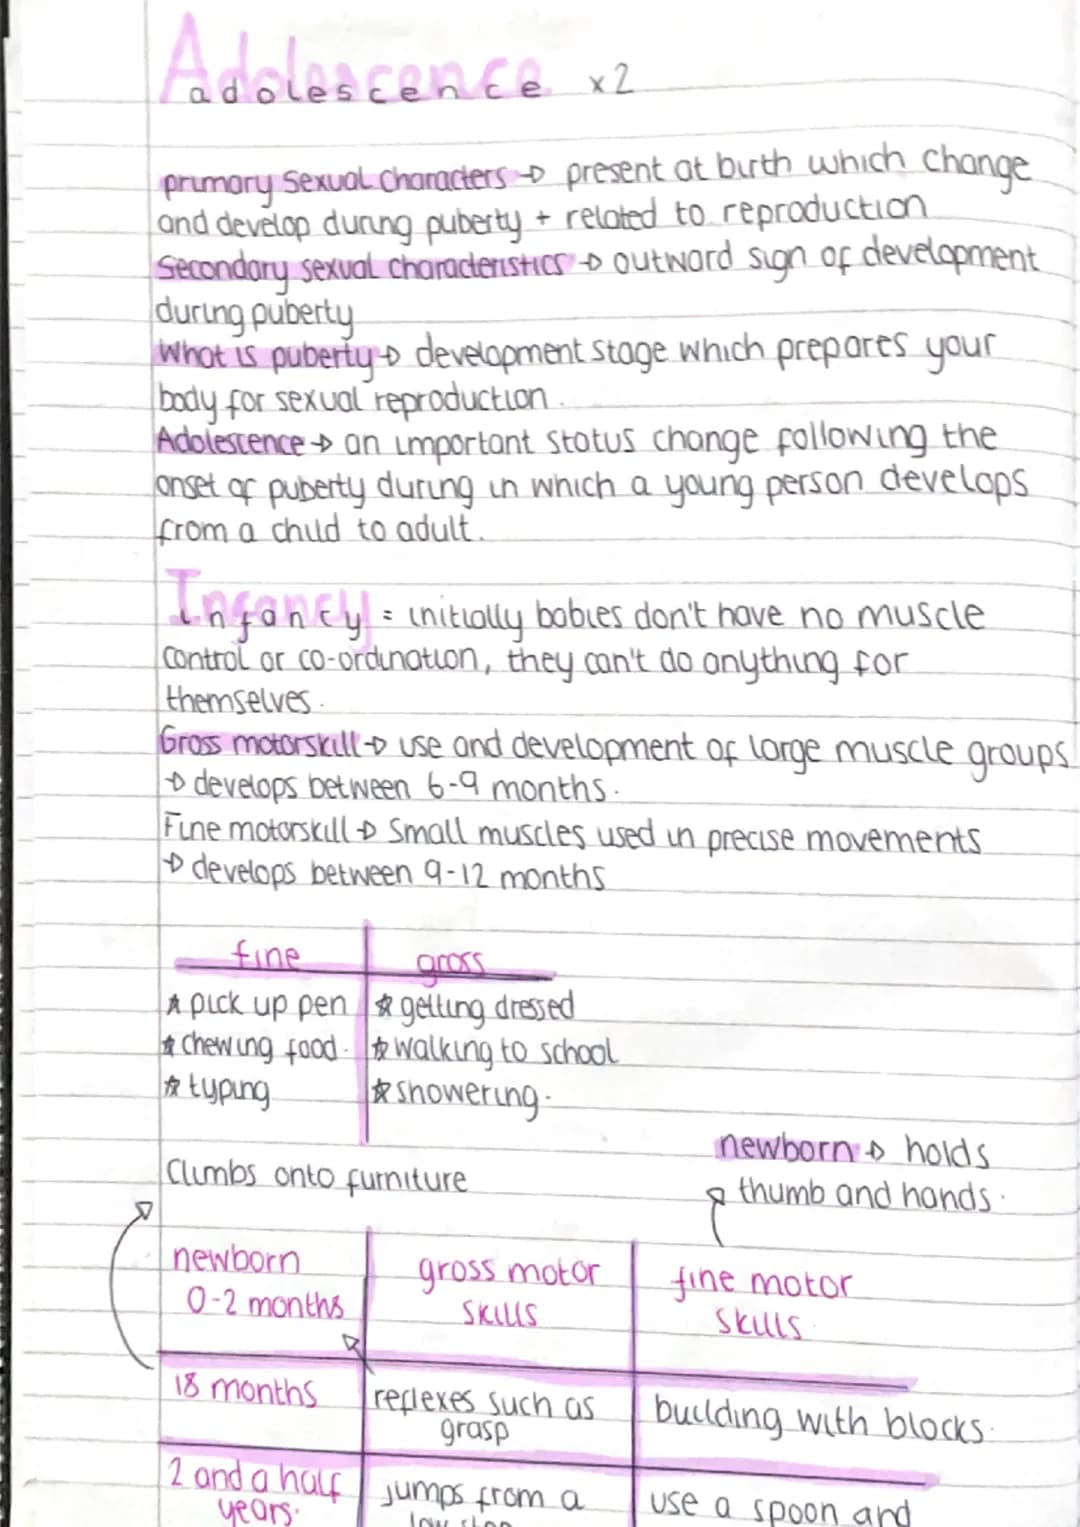 Adolescence
adolescence x2
primary Sexual Characters → present at birth which change
and develop during puberty + related to reproduction
Secondary sexual characteristics → outward sign of development
during puberty
What is puberty → development stage which prepares your
body for sexual reproduction.
Adolescence → an important status change following the
onset of puberty during in which a young person develops
from a child to adult.
Infancy
infancy = initially babies don't have no muscle
control or co-ordination, they can't do anything for
themselves.
Gross motorskill → use and development of large muscle groups
→ develops between 6-9 months.
Fine motorskill → Small muscles used in precise movements
→ develops between 9-12 months
fine gross
☆ pick up pen ☆ getting dressed
☆ chewing food. ☆ walking to school
☆ typing ☆ showering.
newborn → holds
thumb and hands.
Climbs onto furniture
newborn gross motor fine motor
0-2 months skills skills
18 months reflexes such as building with blocks.
grasp
2 and a half jumps from a use a spoon and
years. low step